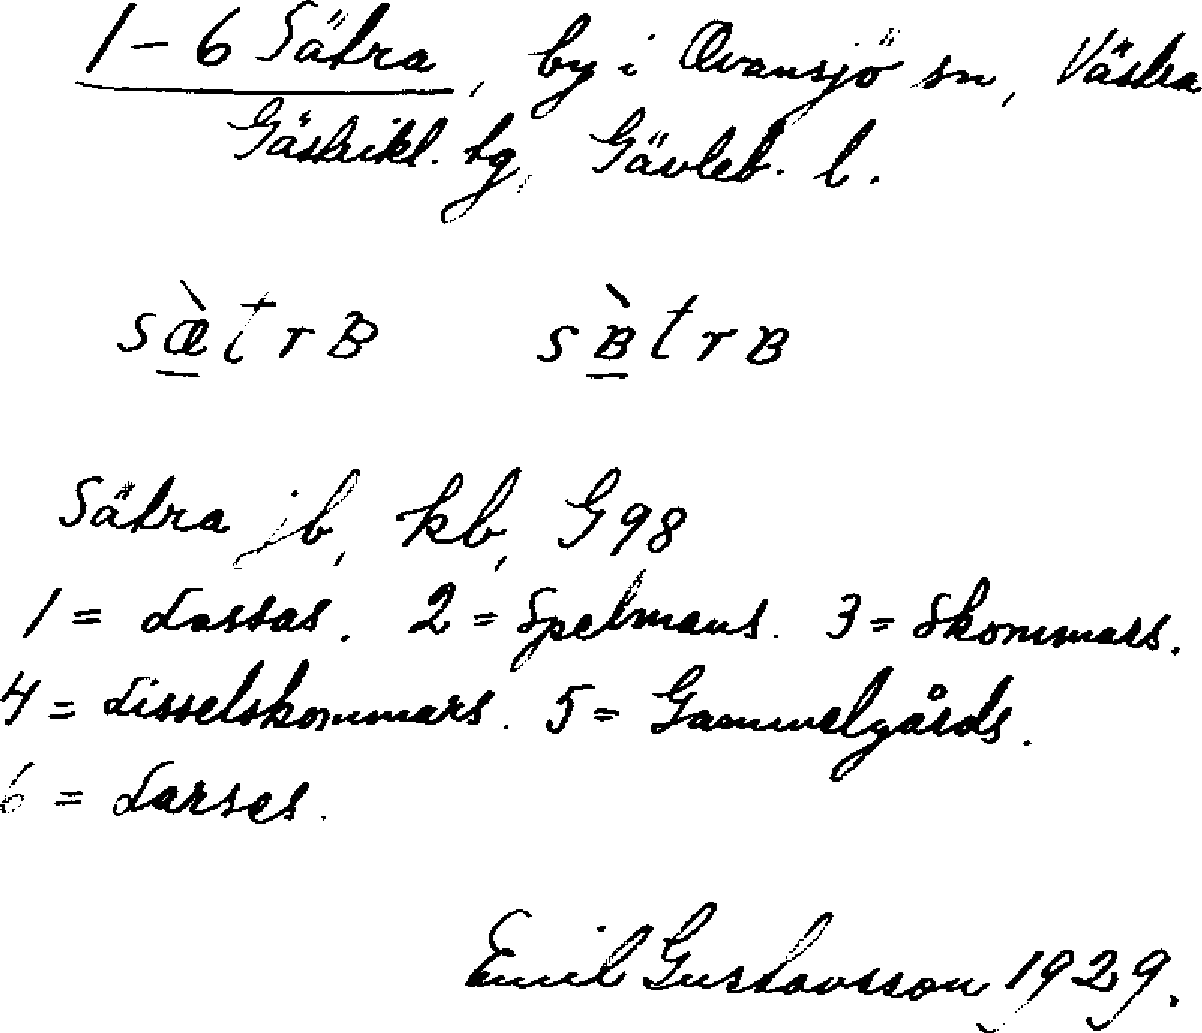 1-6 Sätra, by i Ovansjö sn, Västra
Gästrikl. tg, Gävleb. l.
sæ̀trʙ sʙ̀trʙ
Sätra jb, kb, G98
1 = Lassas. 2 = Spelmans. 3 = Skommars.
4 = Lisselskommars. 5 = Gammelgårds.
6 = Larses.
Emil Gustavsson 1929.